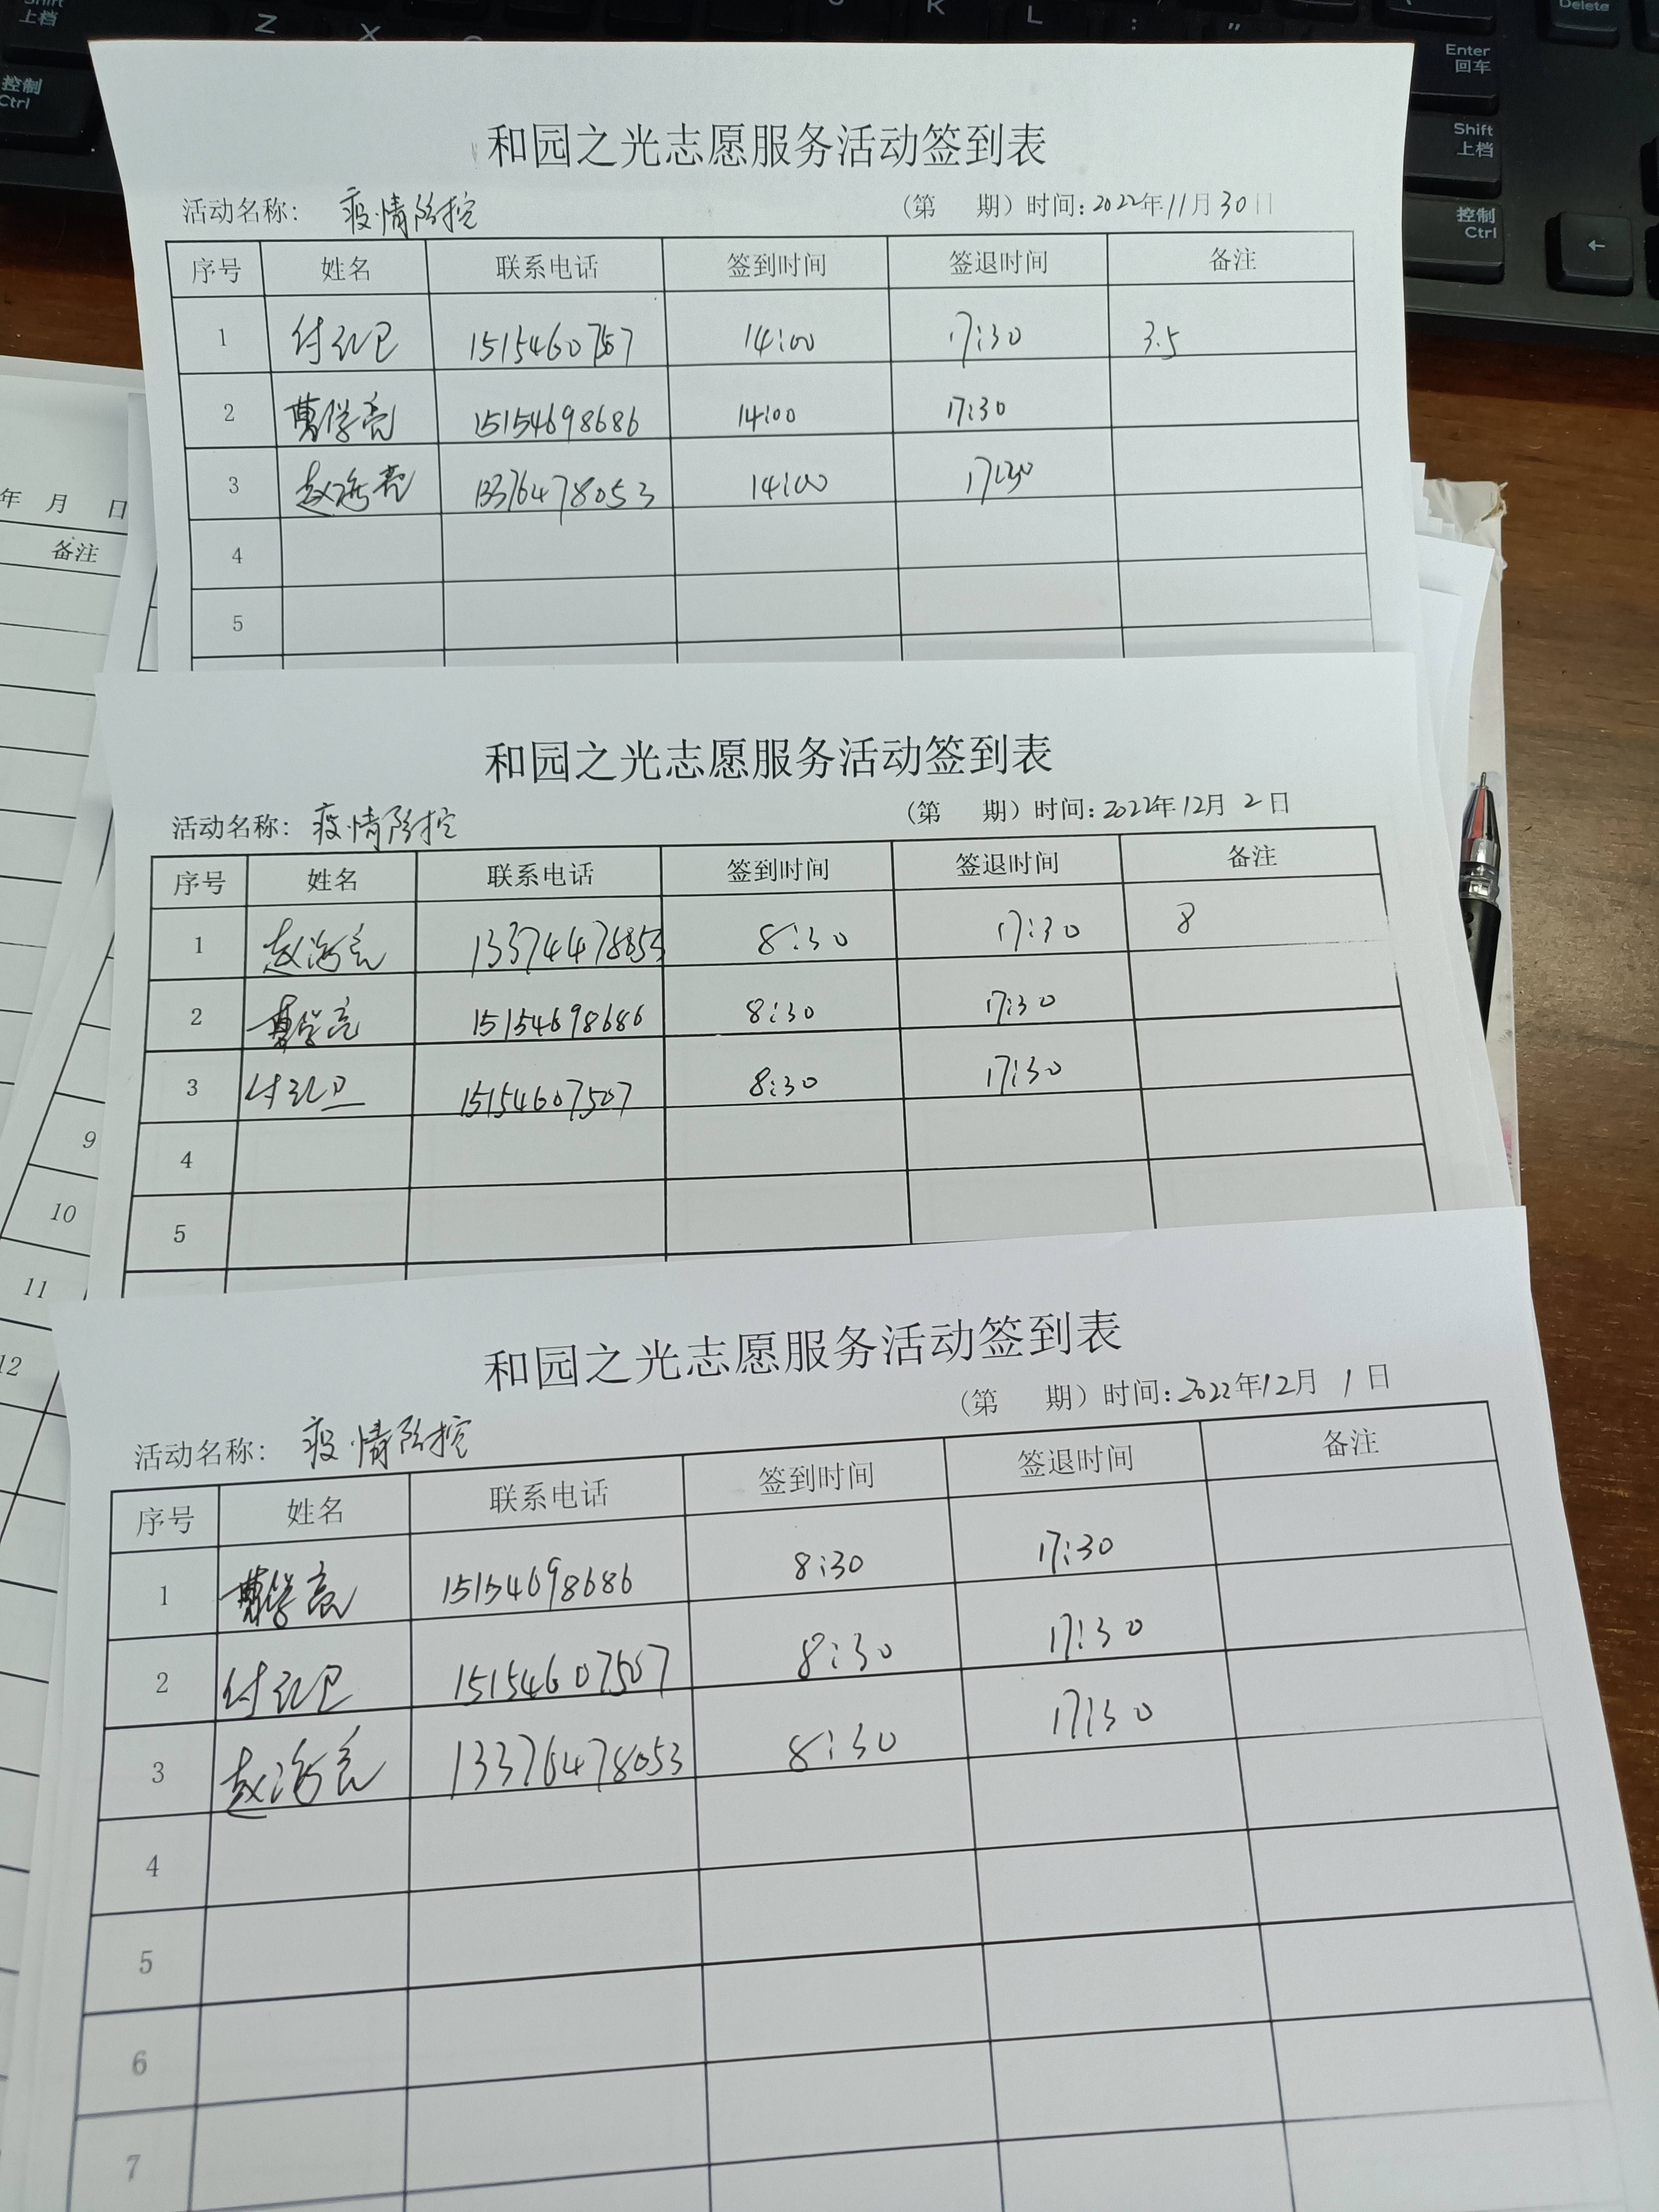 Shift
上档
控制
Ctrl
Z
X
K
L
:
"
Delete
Enter
回车
Shift
上档
控制
Ctrl
←
和园之光志愿服务活动签到表
活动名称: 疫情防控 (第 期) 时间: 2022年11月30日
序号 姓名 联系电话 签到时间 签退时间 备注
1 付红卫 15154607507 14:00 17:30 3.5
2 曹学亮 15154698686 14:00 17:30
3 赵海亮 13376478053 14:00 17:30
4
5
年 月 日
备注
和园之光志愿服务活动签到表
活动名称: 疫情防控 (第 期) 时间: 2022年12月2日
序号 姓名 联系电话 签到时间 签退时间 备注
1 赵海亮 8:30 17:30 8
2 曹学亮 15154698686 8:30 17:30
3 付红卫 15154607507 8:30 17:30
4
5
9
10
11
12
和园之光志愿服务活动签到表
活动名称: 疫情防控 (第 期) 时间: 2022年12月1日
序号 姓名 联系电话 签到时间 签退时间 备注
1 曹学亮 15154698686 8:30 17:30
2 付红卫 15154607507 8:30 17:30
3 赵海亮 13376478053 8:30 17:30
4
5
6
7